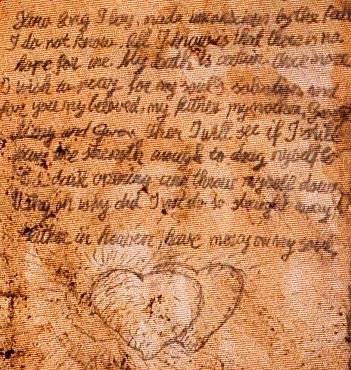 long I lay, made unconscious by the
I do not know. All I know is that there is no
hope for me. My death is certain. Once more
I wish to pray for my soul's salvation and
for you my beloved, my father, my mother,
and Then I will see if I still
have the strength enough to drag myself to
dark opening and throw myself down.
why did I not do so straight away
Father in heaven, have mercy on my soul